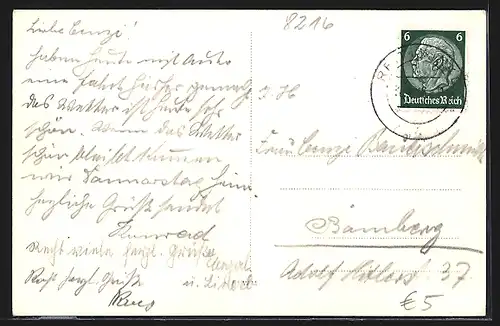 8216
Liebe Cenzi!
haben heute mit Auto
eine Fahrt hierher gemacht
das Wetter ist heute sehr
schön. Wenn das Wetter
schön bleibt kommen
wir Donnerstag heim
herzliche Grüße sendet
Konrad
Recht viele herzl. Grüße
Recht herzl. Grüße
6 6
Deutsches Reich
z. Zt.
Frau Cenzi
Bamberg
Adolf Hitlerst. 37
€5